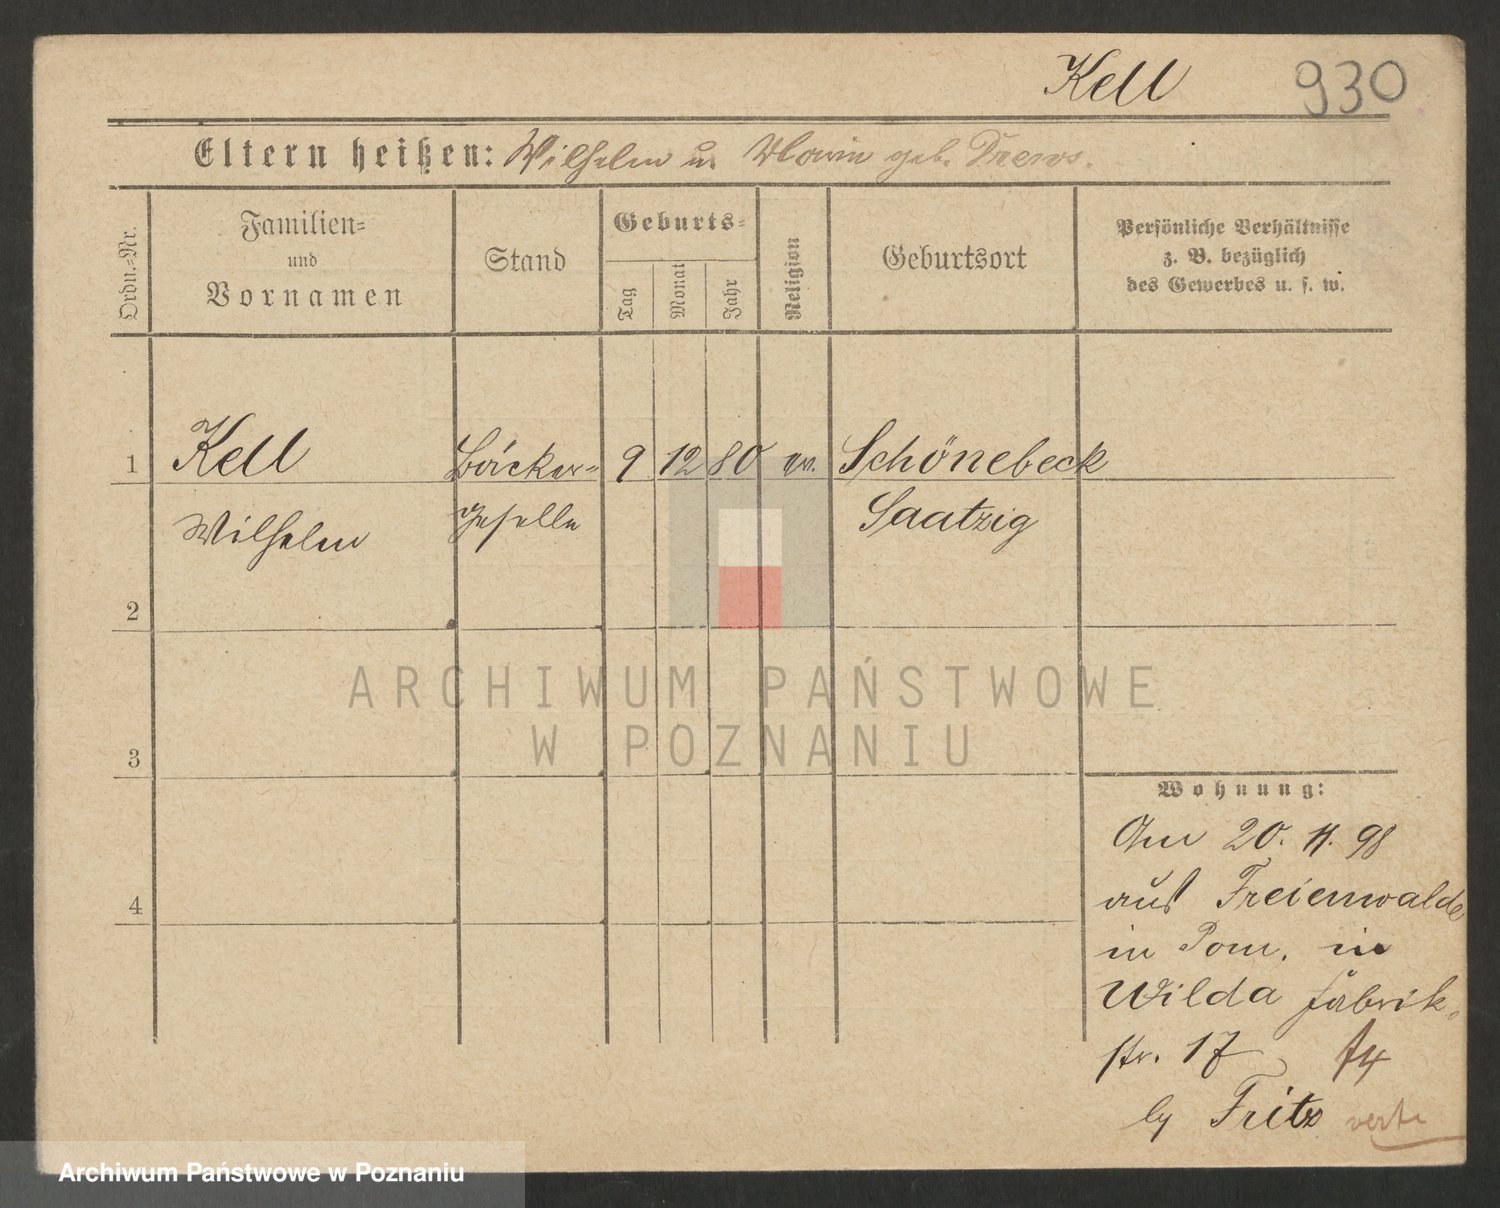 Kell 930
Eltern heißen: Wilhelm u. Marie geb. Drews.
Ordn.-Nr.
Familien-
und
Vornamen
Stand
Geburts-
Tag
Monat
Jahr
Religion
Geburtsort
Persönliche Verhältnisse
z. B. bezüglich
des Gewerbes u. s. w.
1 Kell Bäcker- 9 12 80 ev. Schönebeck
Wilhelm geselle Saatzig
2
3
4
ARCHIWUM PAŃSTWOWE
W POZNANIU
Wohnung:
Am 20. 11. 98
aus Freienwalde
in Pom. in
Wilda Fabrik-
str. 17
by Fritz verte
Archiwum Państwowe w Poznaniu